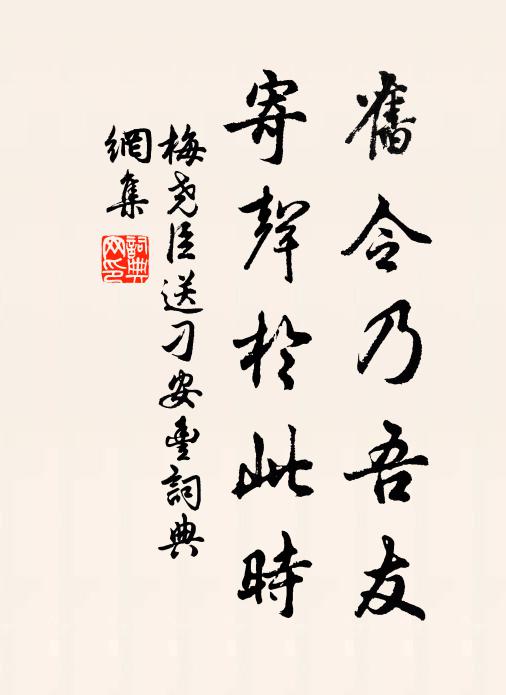 舊令乃吾友
寄聲於此時
梅堯臣送刁安豐詞典
網集
詞典網印